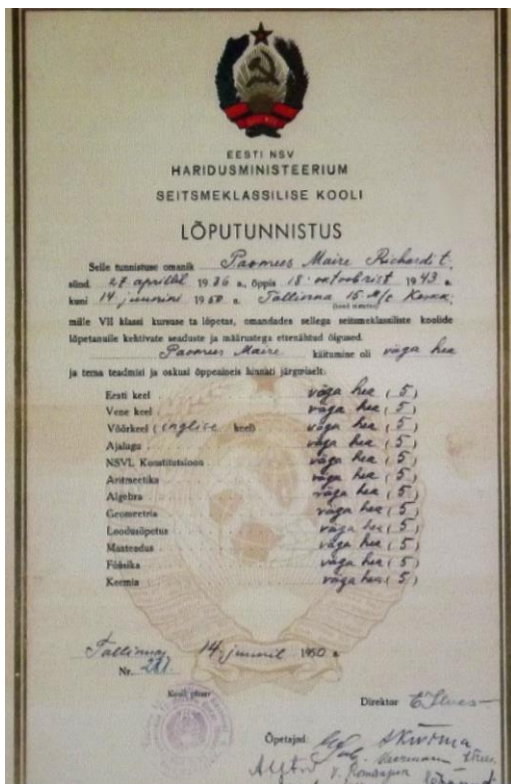 EESTI NSV
HARIDUSMINISTEERIUM
SEITSMEKLASSILISE KOOLI
LÕPUTUNNISTUS
Selle tunnistuse omanik Paomees Maire Richardi t.
sünd. 27. aprillil 1936 a., õppis 18. oktoobrist 1943 a.
kuni 14. juunini 1950 a. Tallinna 15. M/c Keskk.
mille VII klassi kursuse ta lõpetas, omandades sellega seitsmeklassiliste koolide
lõpetanuile kehtivate seaduste ja määrustega ettenähtud õigused.
Paomees Maire käitumine oli väga hea
ja tema teadmisi ja oskusi õppeaineis hinnati järgmiselt:
Eesti keel väga hea (5)
Vene keel väga hea (5)
Võõrkeel (inglise keel) väga hea (5)
Ajalugu väga hea (5)
NSVL Konstitutsioon väga hea (5)
Aritmeetika väga hea (5)
Algebra väga hea (5)
Geomeetria väga hea (5)
Loodusõpetus väga hea (5)
Maateadus väga hea (5)
Füüsika väga hea (5)
Keemia väga hea (5)
Tallinnas, 14. juunil 1950 a.
Nr.
Kooli pitser
Direktor
Õpetajad: